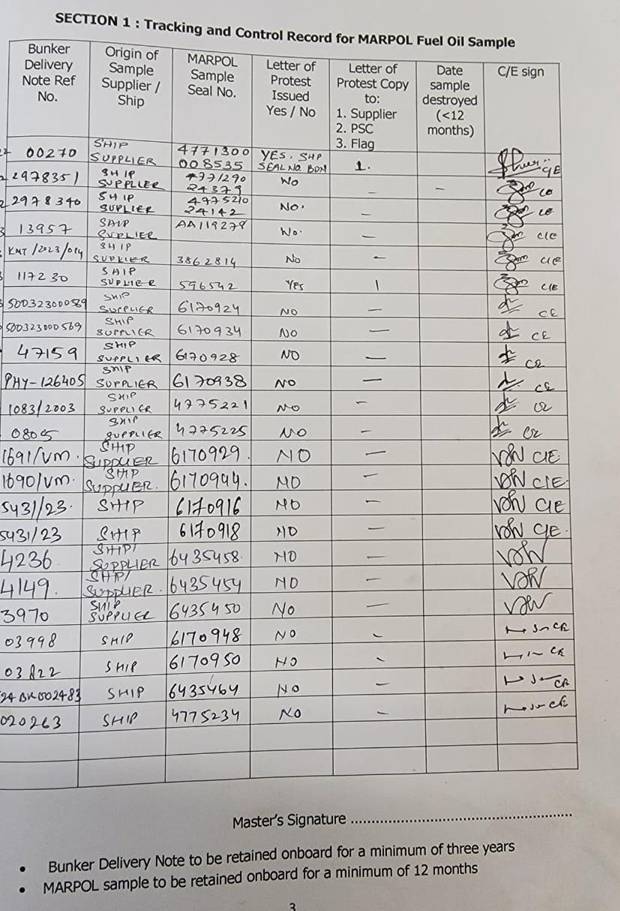 SECTION 1 : Tracking and Control Record for MARPOL Fuel Oil Sample
Bunker Delivery Note Ref No. Origin of Sample Supplier / Ship MARPOL Sample Seal No. Letter of Protest Issued Yes / No Letter of Protest Copy to: 1. Supplier 2. PSC 3. Flag Date sample destroyed (<12 months) C/E sign
00270 SHIP SUPPLIER 4771300 008535 YES. SHP SEAL NO. BDN 1. C/E
2978351 SHIP SUPPLIER 4771290 24379 No – –
2978340 SHIP SUPLIER 4775210 24142 No. –
13957 SHIP SUPPLIER AA119279 No. – C/E
KMT/2023/014 SHIP SUPPLIER 3862814 No – C/E
117230 SHIP SUPPLIER 596542 Yes 1 C/E
500323000589 SHIP SUPPLIER 6170924 NO – CE
500323000569 SHIP SUPPLIER 6170934 No – CE
47159 SHIP SUPPLIER 6170928 NO – CE
PHY-126405 SHIP SUPPLIER 6170938 NO – CE
1083/2003 SHIP SUPPLIER 4775221 NO – CE
08005 SHIP SUPPLIER 4775225 NO – CE
1691/VM. SHIP SUPPLIER 6170929. NO – C/E
1690/VM. SHIP SUPPLIER. 6170944. NO – C/E
5431/23. SHIP 6170916 NO – C/E
5431/23 SHIP 6170918 NO – C/E.
4236 SHIP/ SUPPLIER 6435458 NO –
4149. SHIP/ SUPPLIER. 6435454 NO –
3970 SHIP SUPPLIER 6435450 NO –
03998 SHIP 6170948 NO – CE
03822 SHIP 6170950 NO – CE
SHIP 6435464 NO – CE
020263 SHIP 4775234 NO – CE
Master's Signature ........................................................
• Bunker Delivery Note to be retained onboard for a minimum of three years
• MARPOL sample to be retained onboard for a minimum of 12 months
3